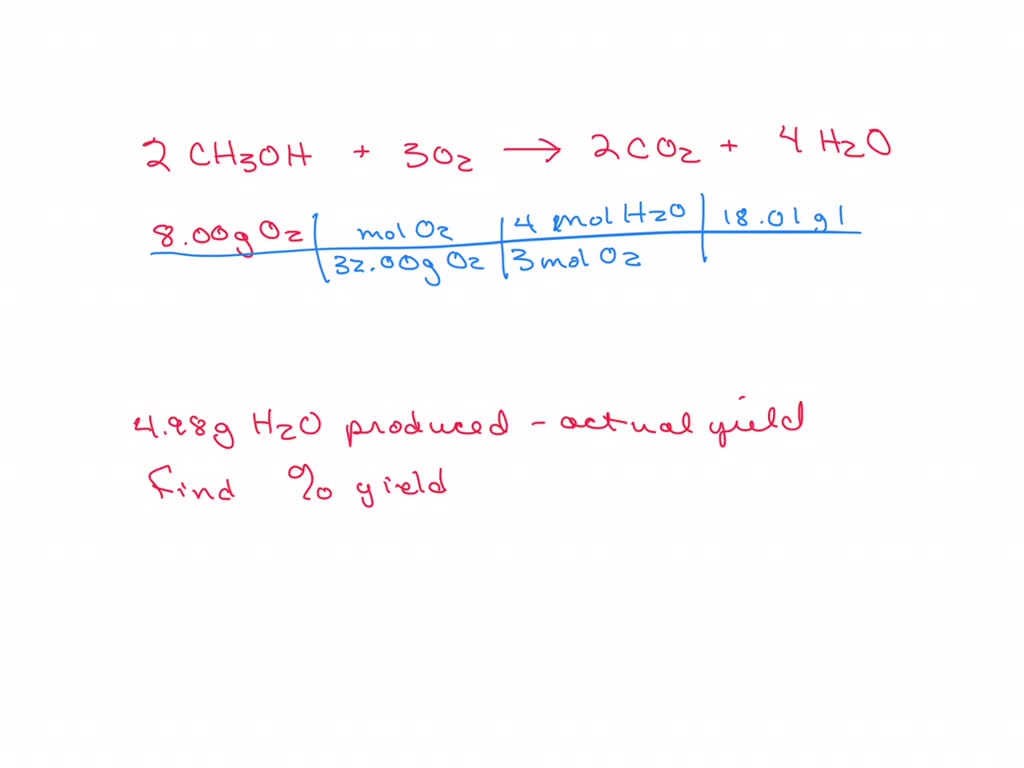 2 CH3OH + 3O2 → 2CO2 + 4 H2O
8.00g O2 | mol O2 | 4 mol H2O | 18.01 g |
32.00g O2 | 3 mol O2
4.98g H2O produced - actual yield
find % yield